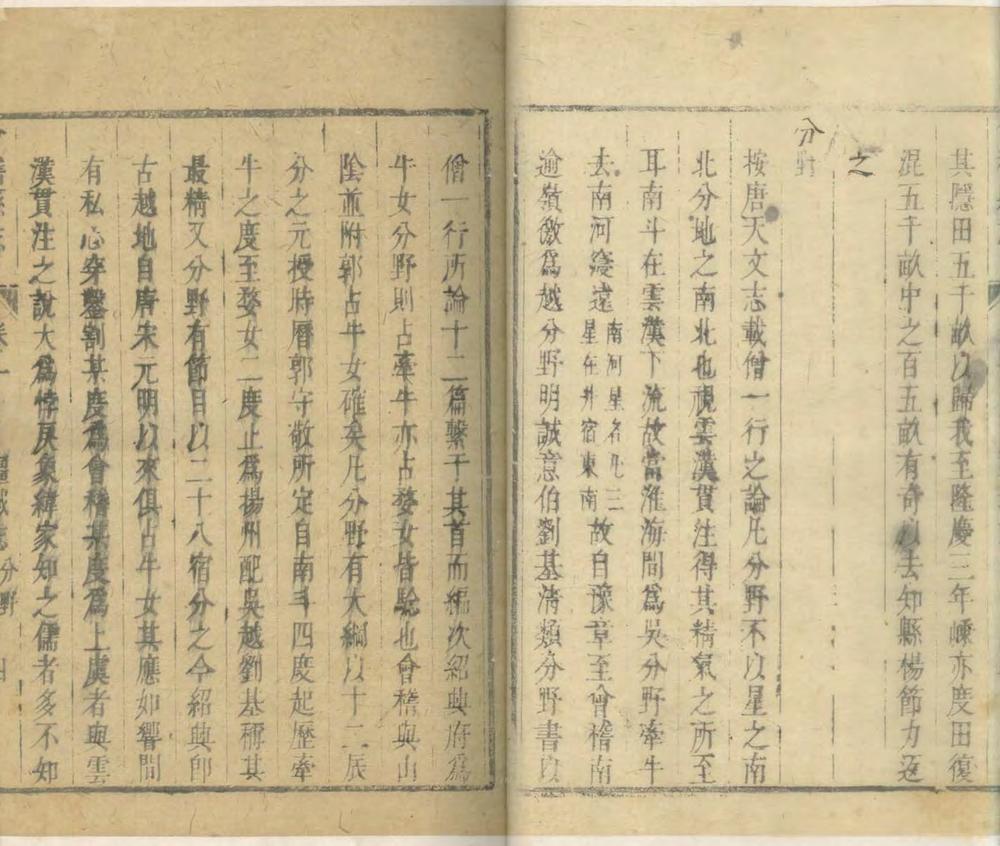 其隱田五千畝以歸我至隆慶三年嵊亦度田復
混五千畝中之百五畝有奇以去知縣楊節力返
之
分野
按唐天文志載僧一行之論凡分野不以星之南
北分地之南北也視雲漢貫注得其精氣之所至
耳南斗在雲漢下流故當淮海間為吳分野牽牛
去南河寖遠南河星名凡三星在井宿東南故自豫章至會稽南
逾嶺徼為越分野明誠意伯劉基清類分野書以
僧一行所論十二篇繫于其首而編次紹興府為
牛女分野則占牽牛亦占婺女皆驗也會稽與山
陰並附郭占牛女確矣凡分野有大綱以十二辰
分之元授時曆郭守敬所定自南斗四度起歷牽
牛之度至婺女二度止為揚州配吳越劉基稱其
最精又分野有節目以二十八宿分之今紹興卽
古越地自唐宋元明以來俱占牛女其應如響間
有私心穿鑿割某度為會稽某度為上虞者與雲
漢貫注之說大為悖戾象緯家知之儒者多不知
分野 四